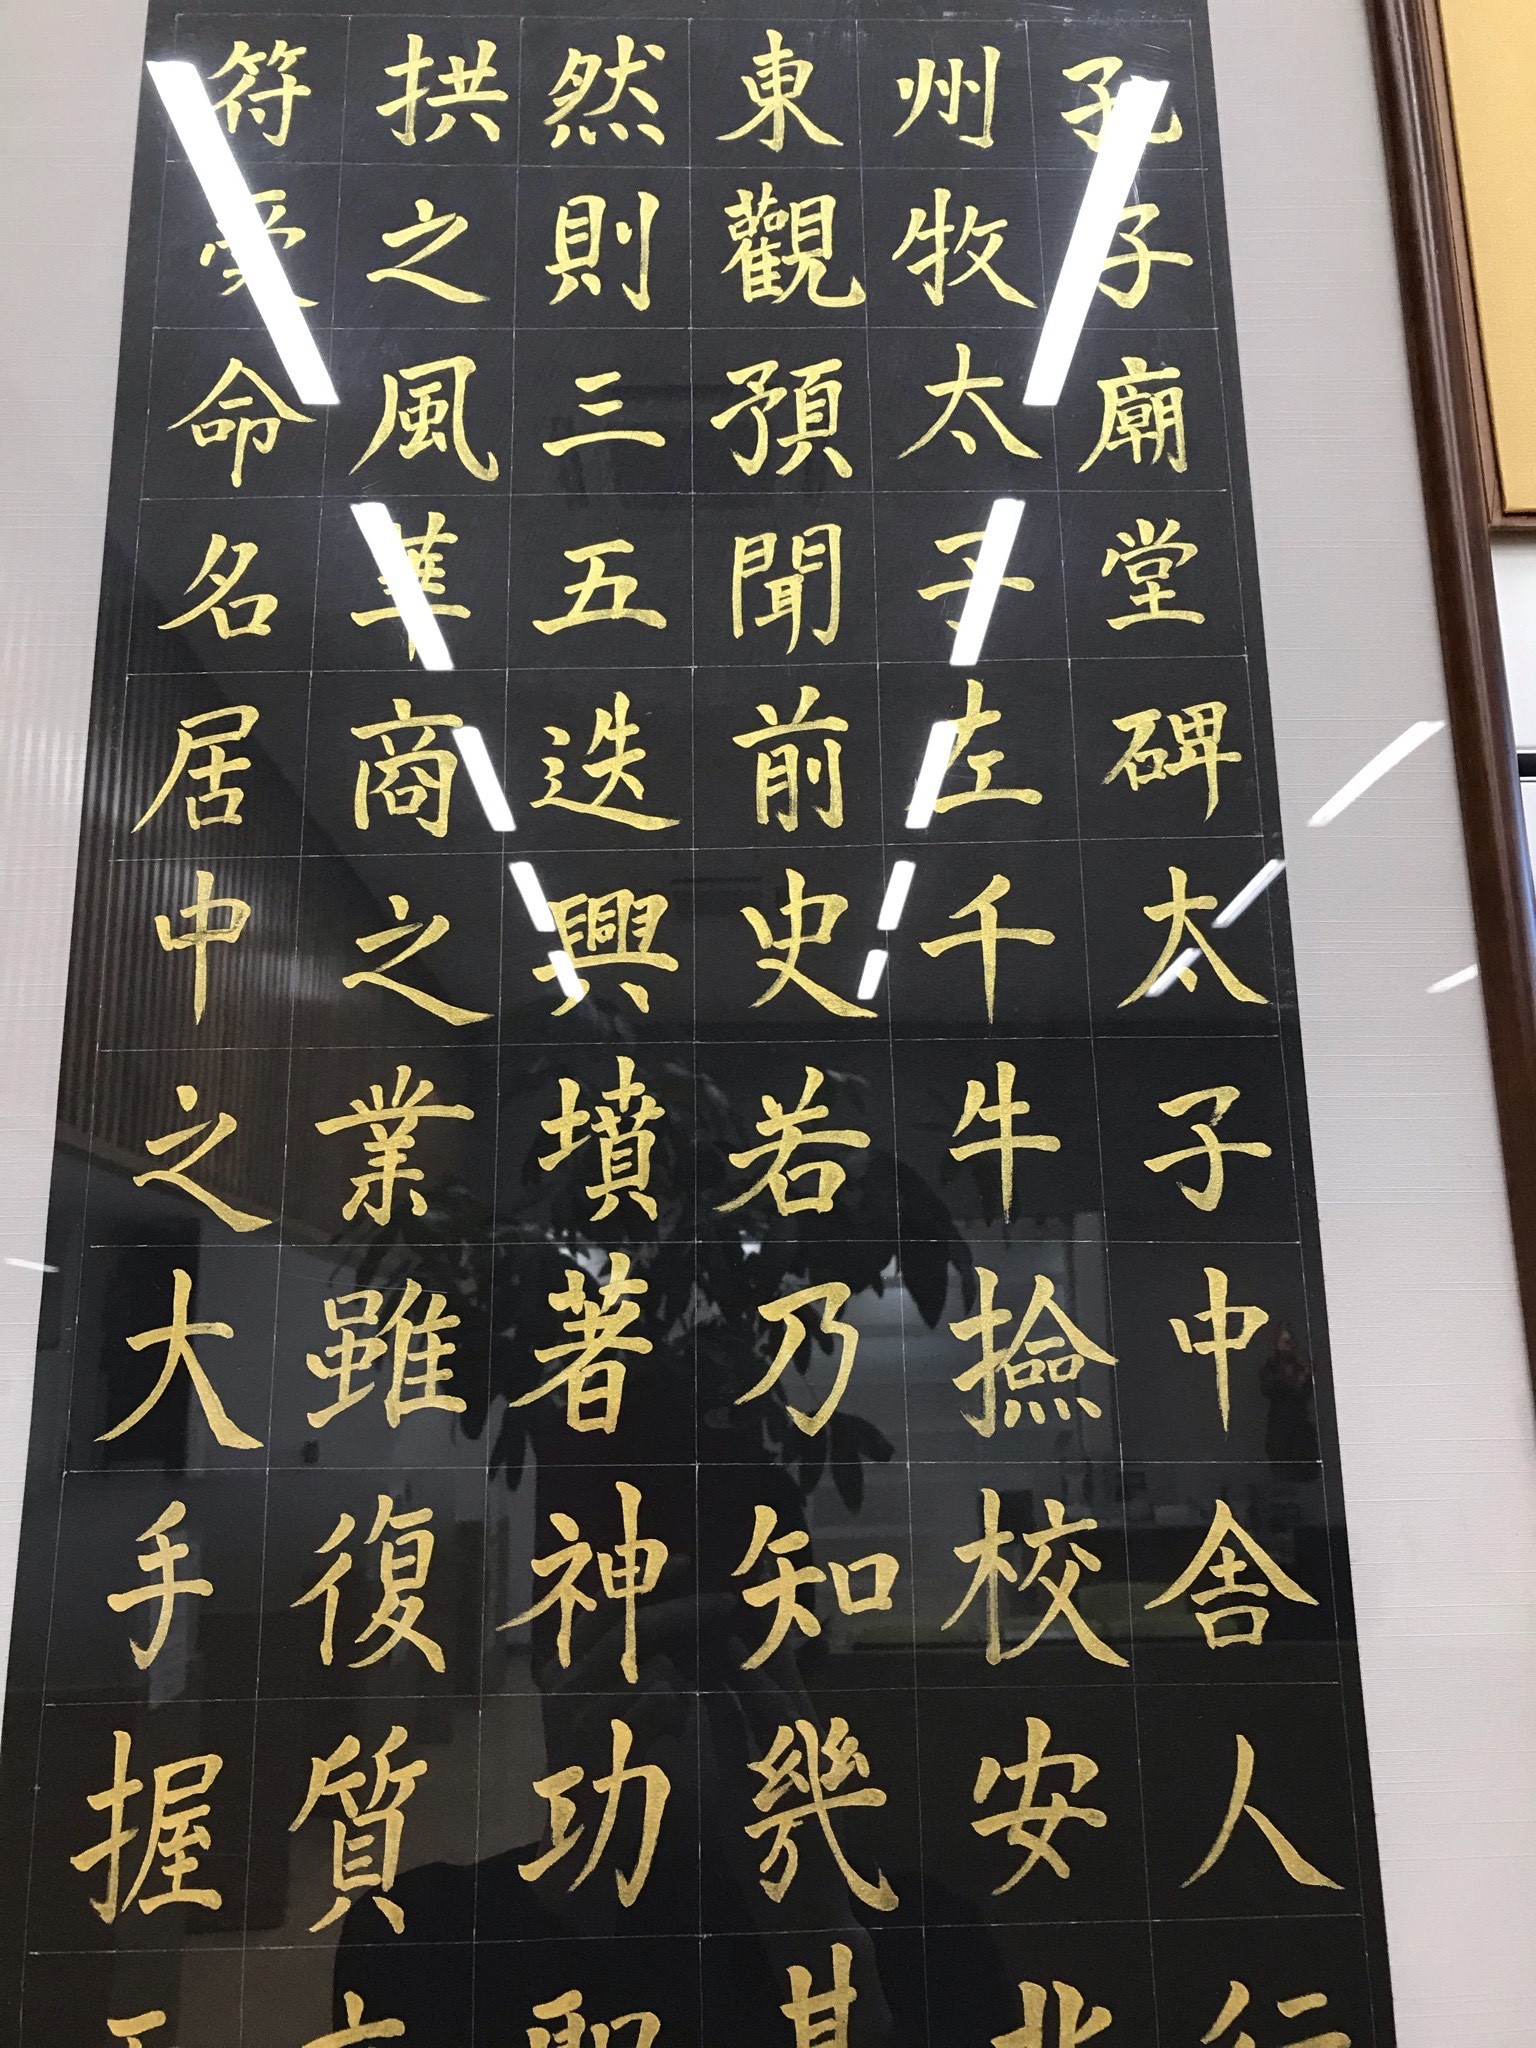 孔子廟堂碑太子中舍人行
州牧太子左千牛撿校安北
東觀預聞前史若乃知幾其
然則三五迭興墳著神功聖
拱之風華商之業雖復質
符受命名居中之大手握